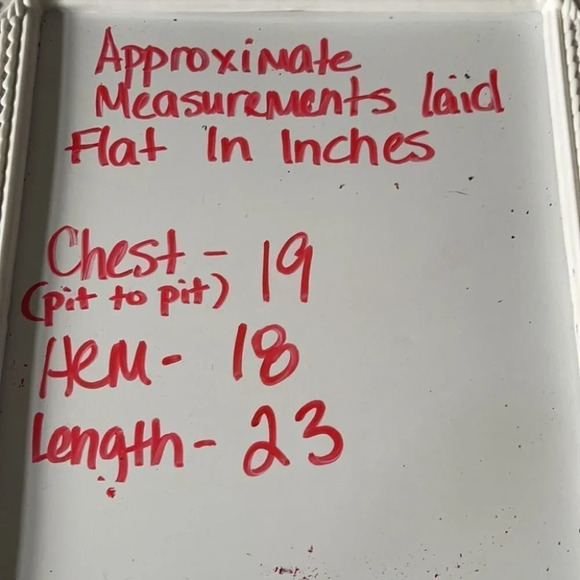 Approximate
Measurements laid
Flat In Inches
Chest - 19
(pit to pit)
Hem - 18
Length - 23